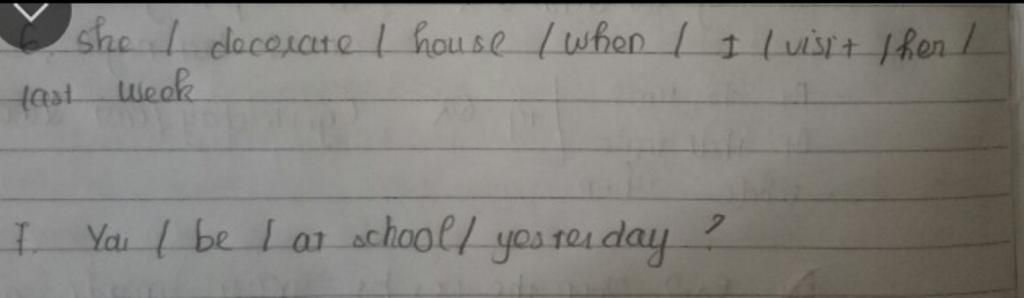 6. she / decorate / house / when / I / visit / her /
last week
7. You / be / at school / yesterday ?